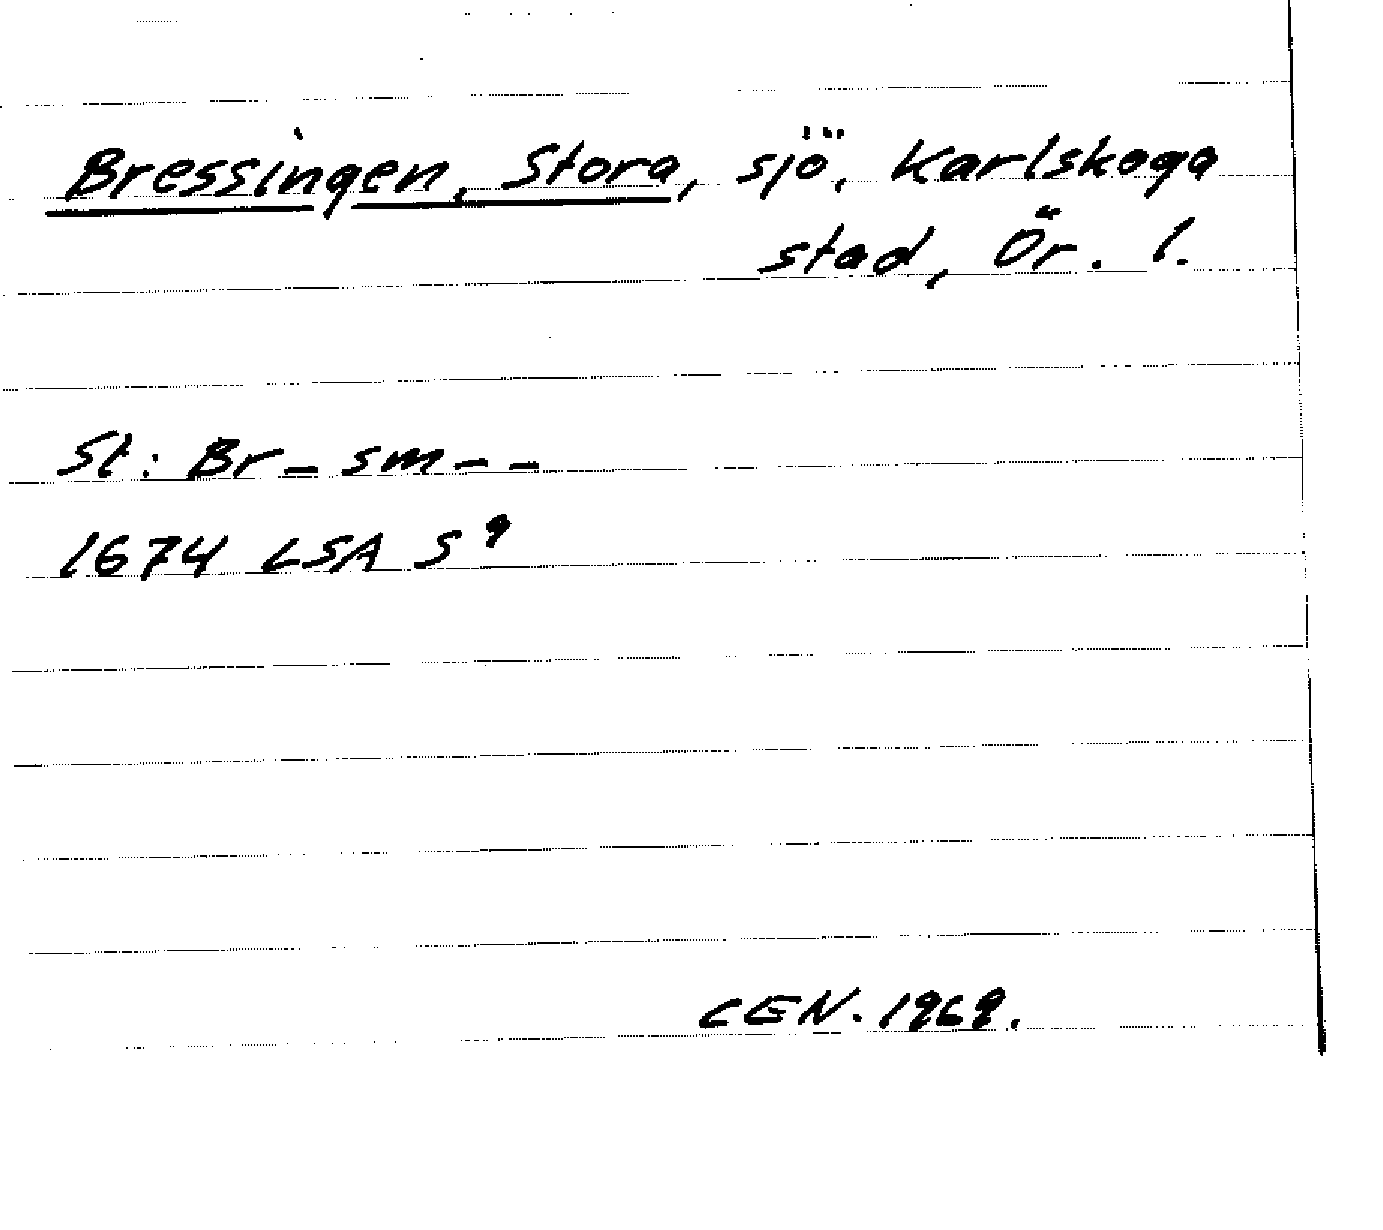 Bressingen, Stora, sjö, Karlskoga
stad, Ör. l.
St: Br_ sm - -
1674 LSA S⁹
CEN. 1969.